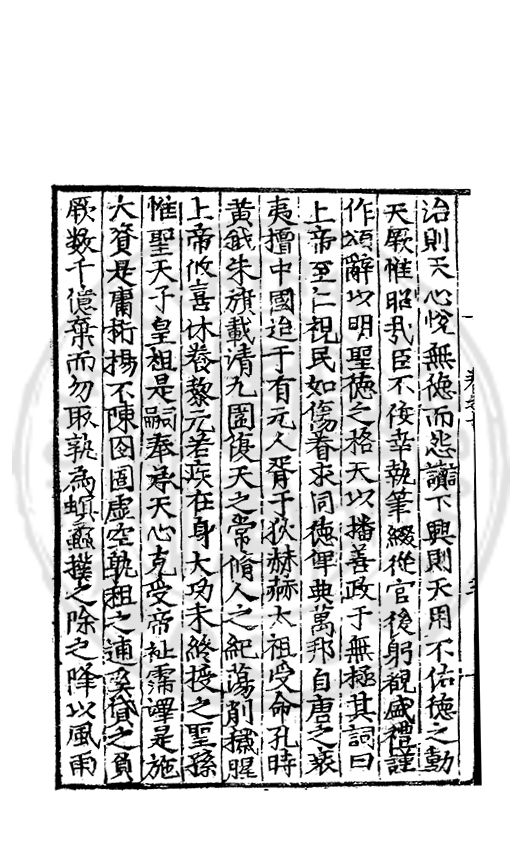 治則天心悅無德而怨讟下興則天用不佑德之動
天厥惟昭哉臣不佞幸執筆綴從官後躬覩盛禮謹
作頌辭以明聖德之格天以播善政于無極其詞曰
上帝至仁視民如傷眷求同德俾典萬邦自唐之衰
夷擅中國迨于有元人胥于狄赫赫太祖受命孔時
黃鉞朱旗載清九圍復天之常脩人之紀蕩削穢腥
上帝攸喜休養黎元若疾在身大功未終授之聖孫
惟聖天子皇祖是嗣奉承天心克受帝祉霈澤是施
大賚是庸桁楊不陳囹圄虛空孰租之逋奚貸之負
厥數千億棄而勿取孰為螟蟊撲之除之降以風雨